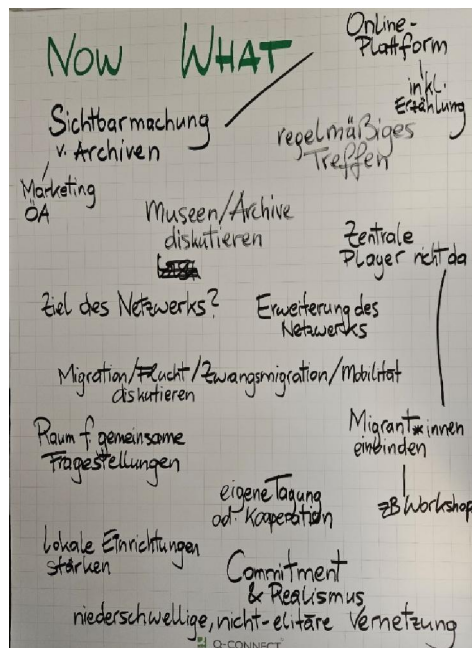 NOW WHAT
Online-
Plattform
inkl.
Erzählung
Sichtbarmachung
v. Archiven
regelmäßiges
Treffen
Marketing
ÖA
Museen/Archive
diskutieren
Zentrale
Player nicht da
Ziel des Netzwerks?
Erweiterung des
Netzwerks
Migration/Flucht/Zwangsmigration/Mobilität
diskutieren
Raum f. gemeinsame
Fragestellungen
Migrant*innen
einbinden
zB Workshop
eigene Tagung
od. Kooperation
lokale Einrichtungen
stärken
Commitment
& Realismus
niederschwellige, nicht-elitäre Vernetzung
Q-CONNECT